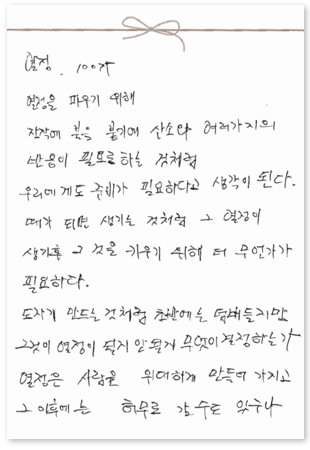 열정. 100자
열정을 피우기 위해
장작에 붙을 붙기에 산소와 여러가지의
반응이 필요로 하는 것처럼
우리에게도 준비가 필요하다고 생각이 된다.
때가 되면 생기는 것처럼 그 열정이
생기후 그 것을 키우기 위해 더 무언가가
필요하다.
도자기 만드는 것처럼 초반에는 덤벼들지만
그것이 열정이 될지 안될지 무엇이 결정하는가
열정은 사람을 위대하게 만들어 가지고
그 이후에는 허무로 갈 수도 있구나